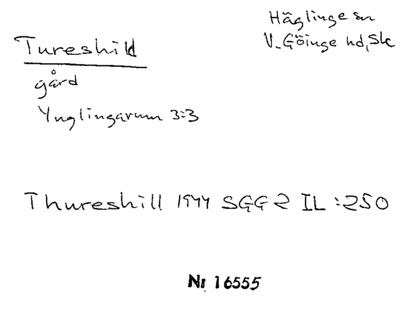 Tureshill
Häglinge sn
V. Göinge hd, Sk
gård
Ynglingarum 3:3
Thureshill 1944 SGG 2 IL :250
Nr 16555